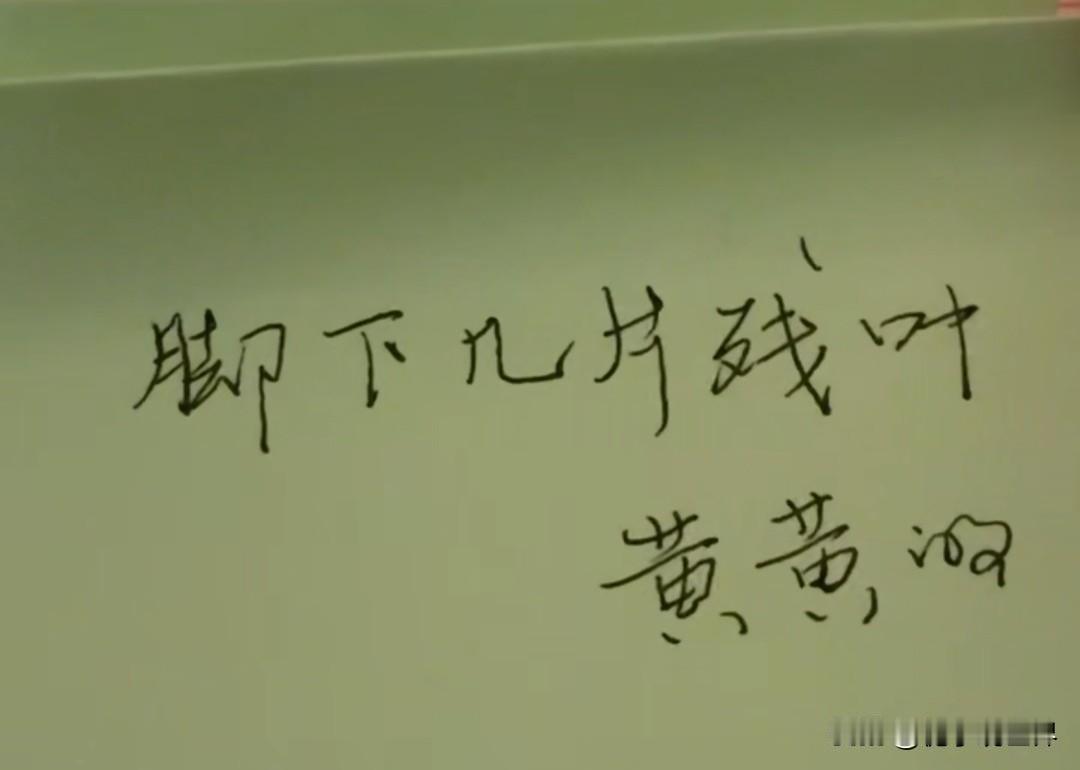 脚下几片残叶
黄黄的